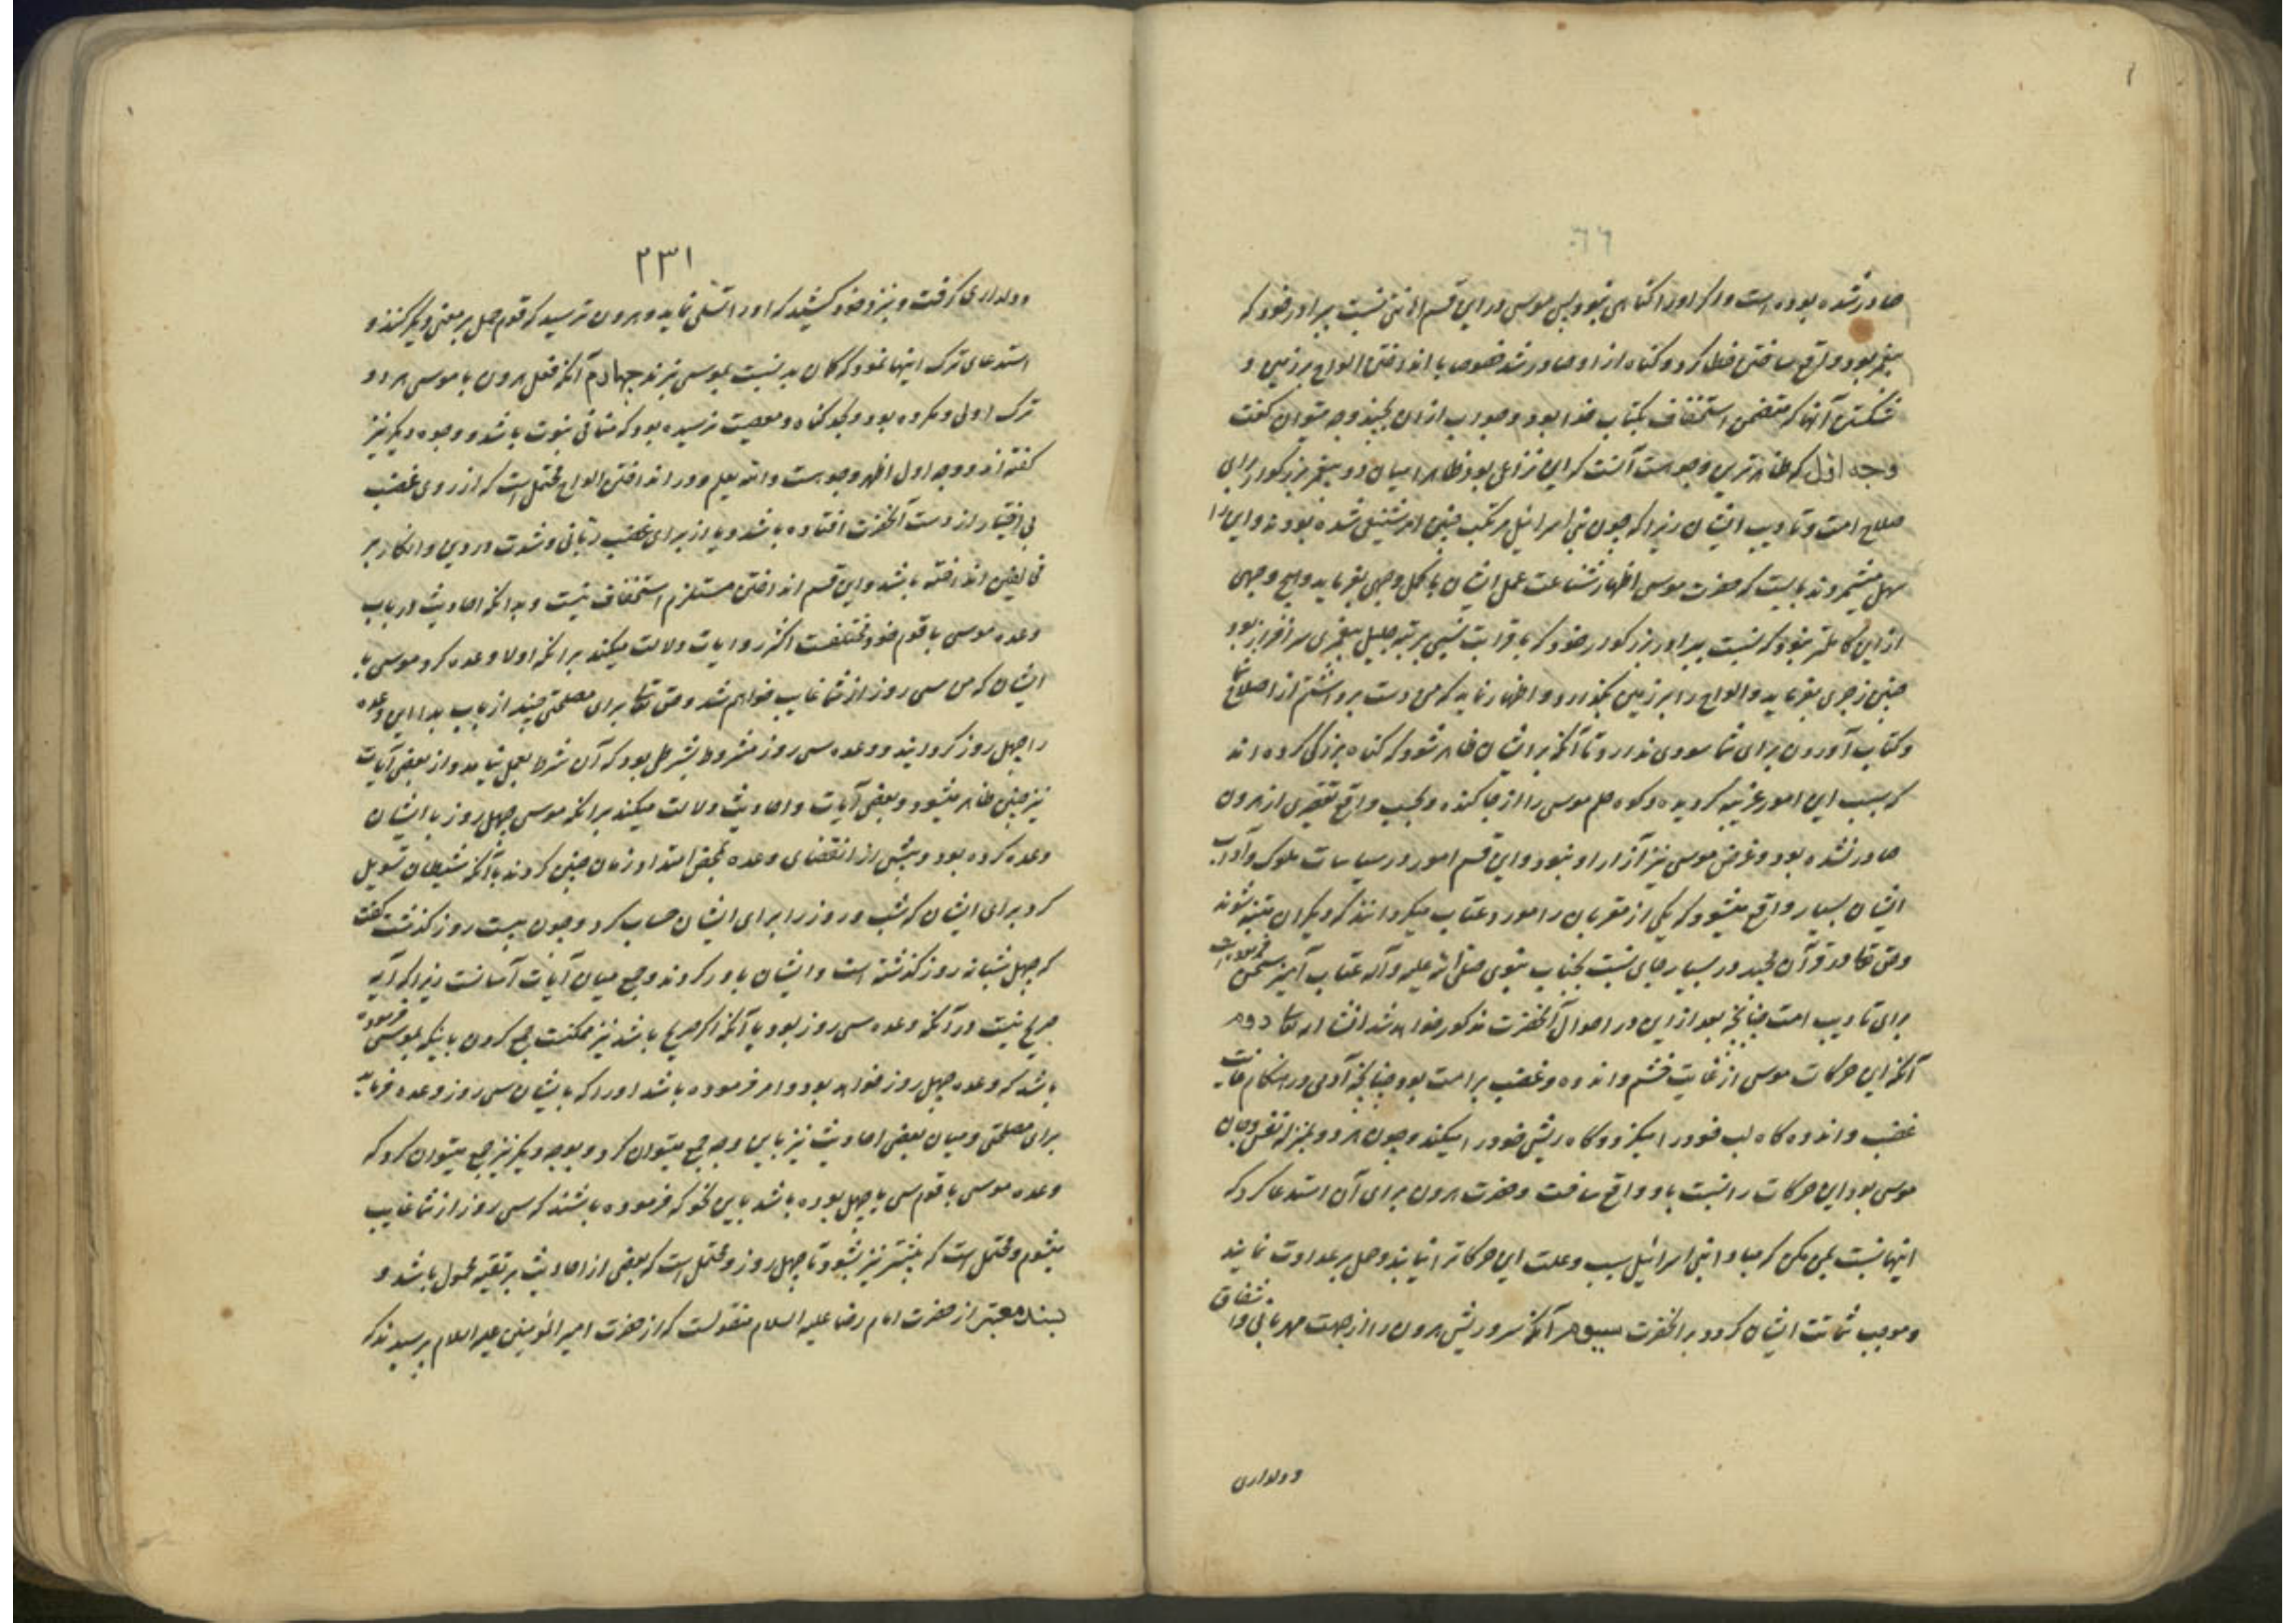 صادر شده بوده است و اگر او را گناهی نبود پس موسی در این قسم اهانتی نسبت ببرادر خود که
پیغمبر بود واقع ساختن خطا کرد و گناه از او صادر شد خصوصا با انداختن الواح بر زمین و
شکستن آنها که متضمن استخفاف بکتاب خدا بود و جواب از آن بچند وجه میتوان گفت
وجه اول که ظاهرترین وجوهست آنست که این نزاعی بود ظاهرا میان دو پیغمبر بزرگوار برای
صلاح امت و تادیب ایشان زیرا که چون بنی اسرائیل مرتکب چنین امر شنیعی شده بودند و این را
سهل میشمردند بایست که حضرت موسی اظهار شناعت عمل ایشان باکمل وجهی بفرماید و هیچ وجهی
از این کاملتر نبود که نسبت ببرادر بزرگوار خود که با قرابت نسبی بمرتبه جلیل پیغمبری سرافراز بود
چنین زجری بفرماید و الواح را بر زمین بگذارد و اظهار نماید که من دست برداشتم از اصلاح شما
و کتاب آوردن برای شما سودی ندارد تا آنکه بر ایشان ظاهر شود که گناه بزرگی کرده‌اند
که سبب این امور غریبه گردیده و کوه حلم موسی را از جا کنده و بحسب واقع تقصیری از هرون
صادر نشده بود و غرض موسی نیز آزار او نبود و این قسم امور در سیاسات ملوک و آداب
ایشان بسیار واقع میشود که یکی از مقربان را مورد عتاب میگردانند که دیگران متنبه شوند
و حق تعالی در قرآن مجید در بسیار جای نسبت بجناب نبوی صلی الله علیه و آله عتاب آمیز سخن فرموده است
برای تادیب امت چنانچه بعد از این در احوال آنحضرت مذکور خواهد شد انشاء الله تعالی دوم
آنکه این حرکات موسی از غایت خشم و اندوه و غضب بر امت بود چنانچه آدمی در هنگام غایت
غضب و اندوه گاه لب خود را میگزد و گاه ریش خود را میکند و چون هر دو بمنزله نفس و جان
موسی بود این حرکات را نسبت باو واقع ساخت و حضرت هرون برای آن استدعا کرد که
اینها نسبت بمن مکن که مبادا بنی اسرائیل سبب و علت این حرکات را نیابند و حمل بر عداوت نمایند
و موجب شماتت ایشان گردد بر آنحضرت سیوم آنکه سر و ریش هرون را از جهت مهربانی و اشفاق
و دلداری
۲۳۱
و دلداری گرفت و بنزد خود کشید که او را تسلی نماید و هرون ترسید که قوم حمل بر معنی دیگر کنند و
استدعای ترک اینها نمود که گمان بد نسبت بموسی نبرند چهارم آنکه فعل هرون با موسی هر دو
ترک اولی و مکروه بود و بحد گناه و معصیت نرسیده بود که منافی نبوت باشد و وجوه دیگر نیز
گفته‌اند و وجه اول اظهر وجوهست و الله یعلم و در انداختن الواح محتمل است که از روی غضب
بی اختیار از دست آنحضرت افتاده باشد و یا از برای غضب ربانی و شدت در دین و انکار بر
مخالفین انداخته باشد و این قسم انداختن مستلزم استخفاف نیست و بدانکه احادیث در باب
وعده موسی با قوم خود مختلفست اکثر روایات دلالت میکند بر آنکه اولا وعده کرد موسی با
ایشان که من سی روز از شما غایب خواهم شد و حق تعالی برای مصلحتی چند از باب بدا این وعده
را چهل روز گردانید و وعده سی روز مشروط بشرطی بود که آن شرط بعمل نیامد و از بعضی آیات
نیز چنین ظاهر میشود و بعضی آیات و احادیث دلالت میکند بر آنکه موسی چهل روز با ایشان
وعده کرده بود و پیش از انقضای وعده بمحض امتداد زمان چنین کردند با آنکه شیطان تسویل
کرد برای ایشان که شب و روز را برای ایشان حساب کرد و چون بیست روز گذشت گفت
که چهل شبانه روز گذشته است و ایشان باور کردند و جمع میان آیات آسانست زیرا که آیه
صریح نیست در آنکه وعده سی روز بود یا آنکه اگر صریح باشد نیز ممکنست جمع کردن باینکه بموسی فرموده
باشد که وعده چهل روز خواهد بود و امر فرموده باشد او را که بایشان سی روز وعده فرماید
برای مصلحتی و میان بعضی احادیث نیز باین وجه جمع میتوان کرد و بوجه دیگر نیز جمع میتوان کرد که
وعده موسی با قوم سی یا چهل بوده باشد باین نحو که فرموده باشند که سی روز از شما غایب
میشوم و محتمل است که بیشتر نیز بشود تا چهل روز و محتمل است که بعضی از احادیث بر تقیه محمول باشد و
بسند معتبر از حضرت امام رضا علیه السلام منقولست که از حضرت امیر المؤمنین علیه السلام پرسیدند که